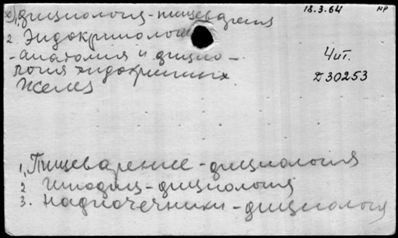 18.3.64 НР
2) физиология-пищеварения
2. Эндокринология
-анатомия и физио-
логия эндокринных
желез
Чит.
Д30253
1, Пищеварение-физиология
2 Гипофиз-физиология
3. Надпочечники-физиология